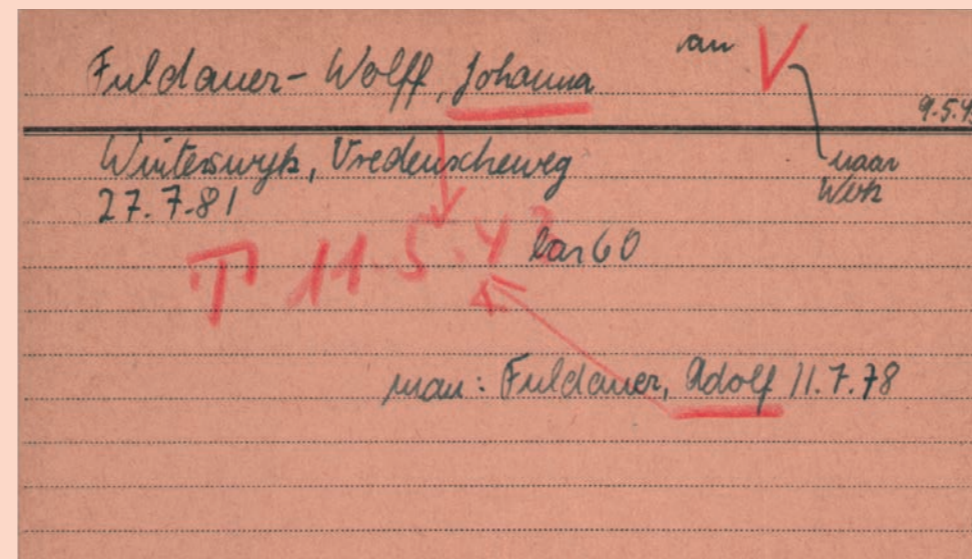 Fuldauer-Wolff, Johanna an V
9.5.4
Winterswyk, Vredenscheweg naar
27.7.81 Wbk
T 11.5.43 bar 60
man: Fuldauer, Adolf 11.7.78